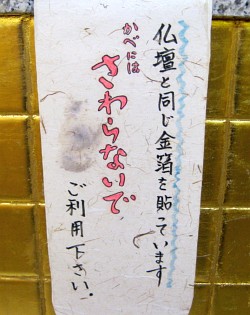 仏壇と同じ金箔を貼っています
かべには
さわらないで
ご利用下さい。